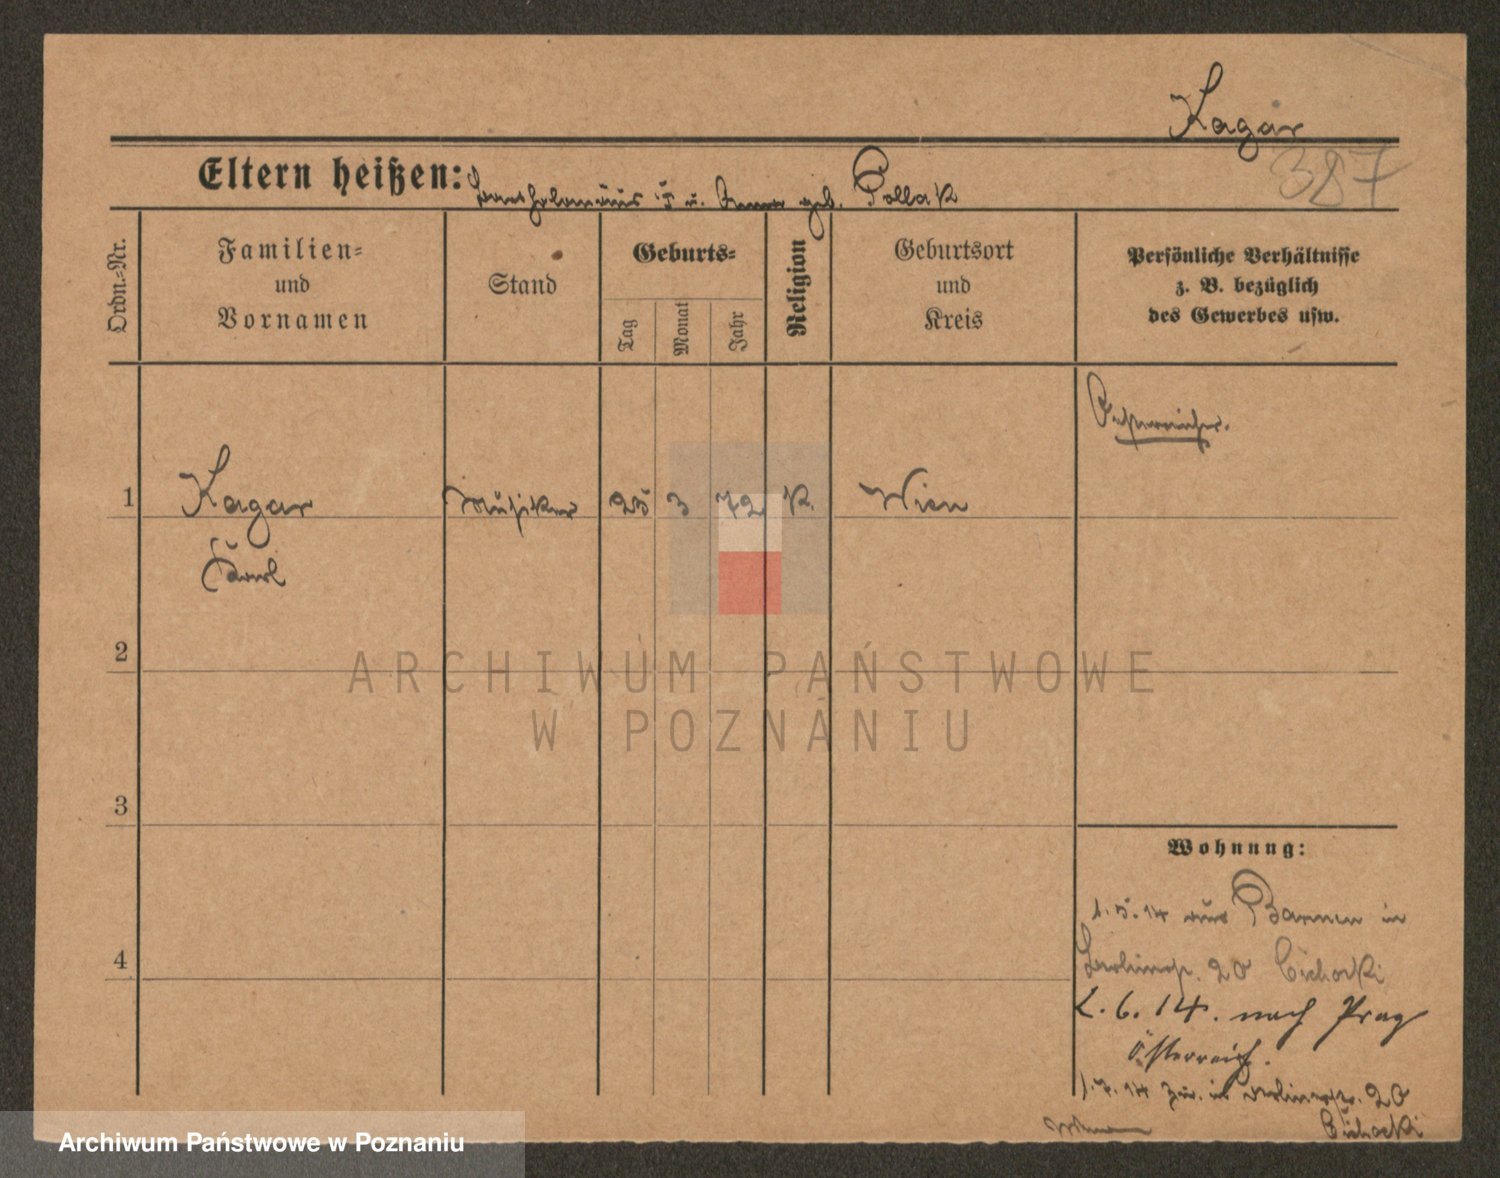 Kagar
387
Eltern heißen: Bartholomäus K u. Anna geb. Pollak
Ordn.-Nr.
Familien-
und
Vornamen
Stand
Geburts-
Tag
Monat
Jahr
Religion
Geburtsort
und
Kreis
Persönliche Verhältnisse
z. B. bezüglich
des Gewerbes usw.
Oesterreicher.
1 Kagar Musiker 25 3 72 K. Wien
Karl
2
3
4
ARCHIWUM PAŃSTWOWE
W POZNANIU
Wohnung:
1.5.14 aus Barmen in
Berlinerstr. 20 Cichocki
2.6.14. nach Prag
Österreich.
1.7.14 zur. in Berlinerstr. 20
Cichocki
Archiwum Państwowe w Poznaniu